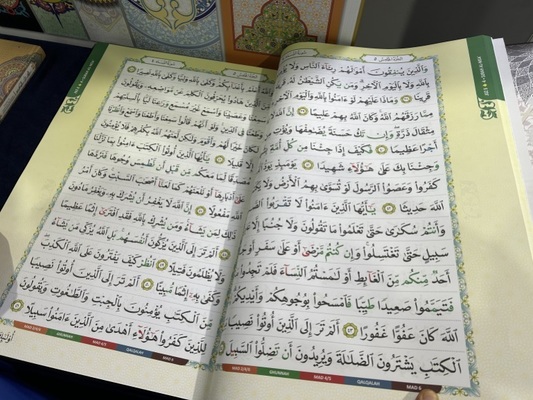 وَٱلَّذِينَ يُنفِقُونَ أَمْوَٰلَهُمْ رِئَآءَ ٱلنَّاسِ وَلَا
بِٱللَّهِ وَلَا بِٱلْيَوْمِ ٱلْأَخِرِ وَمَن يَكُنِ ٱلشَّيْطَٰنُ لَهُۥ
قَرِينًا ٣٨ وَمَاذَا عَلَيْهِمْ لَوْ ءَامَنُوا۟ بِٱللَّهِ وَٱلْيَوْمِ ٱلْأَخِرِ
مِمَّا رَزَقَهُمُ ٱللَّهُ وَكَانَ ٱللَّهُ بِهِمْ عَلِيمًا ٣٩
مِثْقَالَ ذَرَّةٍ وَإِن تَكُ حَسَنَةً يُضَٰعِفْهَا وَيُؤْتِ
أَجْرًا عَظِيمًا ٤٠ فَكَيْفَ إِذَا جِئْنَا مِن كُلِّ أُمَّةٍ
وَجِئْنَا بِكَ عَلَىٰ هَٰٓؤُلَآءِ شَهِيدًا ٤١ يَوْمَئِذٍ يَوَدُّ
كَفَرُوا۟ وَعَصَوُا۟ ٱلرَّسُولَ لَوْ تُسَوَّىٰ بِهِمُ ٱلْأَرْضُ وَلَا
ٱللَّهَ حَدِيثًا ٤٢ يَٰٓأَيُّهَا ٱلَّذِينَ ءَامَنُوا۟ لَا تَقْرَبُوا۟
وَأَنتُمْ سُكَٰرَىٰ حَتَّىٰ تَعْلَمُوا۟ مَا تَقُولُونَ وَلَا جُنُبًا إِلَّا
سَبِيلٍ حَتَّىٰ تَغْتَسِلُوا۟ وَإِن كُنتُم مَّرْضَىٰٓ أَوْ عَلَىٰ سَفَرٍ أَوْ جَآءَ
أَحَدٌ مِّنكُم مِّنَ ٱلْغَآئِطِ أَوْ لَٰمَسْتُمُ ٱلنِّسَآءَ فَلَمْ تَجِدُوا۟
فَتَيَمَّمُوا۟ صَعِيدًا طَيِّبًا فَٱمْسَحُوا۟ بِوُجُوهِكُمْ وَأَيْدِيكُمْ
ٱللَّهَ كَانَ عَفُوًّا غَفُورًا ٤٣ أَلَمْ تَرَ إِلَى ٱلَّذِينَ أُوتُوا۟ نَصِيبًا
ٱلْكِتَٰبِ يَشْتَرُونَ ٱلضَّلَٰلَةَ وَيُرِيدُونَ أَن تَضِلُّوا۟ ٱلسَّبِيلَ
MAD 2/4/6 GHUNNAH MAD 4/5 QALQALAH MAD 6
وَٱللَّهُ أَعْلَمُ بِأَعْدَآئِكُمْ وَكَفَىٰ بِٱللَّهِ وَلِيًّا وَكَفَىٰ بِٱللَّهِ نَصِيرًا
هَادُوا۟ يُحَرِّفُونَ ٱلْكَلِمَ عَن مَّوَاضِعِهِۦ
وَعَصَيْنَا وَٱسْمَعْ غَيْرَ مُسْمَعٍ وَرَٰعِنَا لَيًّۢا بِأَلْسِنَتِهِمْ
وَطَعْنًا فِى ٱلدِّينِ وَلَوْ أَنَّهُمْ قَالُوا۟ سَمِعْنَا وَأَطَعْنَا وَٱسْمَعْ وَٱنظُرْنَا
لَكَانَ خَيْرًا لَّهُمْ وَأَقْوَمَ وَلَٰكِن لَّعَنَهُمُ ٱللَّهُ بِكُفْرِهِمْ فَلَا يُؤْمِنُونَ
إِلَّا قَلِيلًا ٤٦ يَٰٓأَيُّهَا ٱلَّذِينَ أُوتُوا۟ ٱلْكِتَٰبَ ءَامِنُوا۟ بِمَا نَزَّلْنَا
مُصَدِّقًا لِّمَا مَعَكُم مِّن قَبْلِ أَن نَّطْمِسَ وُجُوهًا فَنَرُدَّهَا
عَلَىٰٓ أَدْبَارِهَآ أَوْ نَلْعَنَهُمْ كَمَا لَعَنَّآ أَصْحَٰبَ ٱلسَّبْتِ وَكَانَ أَمْرُ
مَفْعُولًا ٤٧ إِنَّ ٱللَّهَ لَا يَغْفِرُ أَن يُشْرَكَ بِهِۦ وَيَغْفِرُ مَا دُونَ
ذَٰلِكَ لِمَن يَشَآءُ وَمَن يُشْرِكْ بِٱللَّهِ فَقَدِ ٱفْتَرَىٰٓ إِثْمًا عَظِيمًا
٤٨ أَلَمْ تَرَ إِلَى ٱلَّذِينَ يُزَكُّونَ أَنفُسَهُم بَلِ ٱللَّهُ يُزَكِّى مَن يَشَآءُ
وَلَا يُظْلَمُونَ فَتِيلًا ٤٩ ٱنظُرْ كَيْفَ يَفْتَرُونَ عَلَى ٱللَّهِ ٱلْكَذِبَ
وَكَفَىٰ بِهِۦٓ إِثْمًا مُّبِينًا ٥٠ أَلَمْ تَرَ إِلَى ٱلَّذِينَ أُوتُوا۟ نَصِيبًا
مِّنَ ٱلْكِتَٰبِ يُؤْمِنُونَ بِٱلْجِبْتِ وَٱلطَّٰغُوتِ وَيَقُولُونَ
لِلَّذِينَ كَفَرُوا۟ هَٰٓؤُلَآءِ أَهْدَىٰ مِنَ ٱلَّذِينَ ءَامَنُوا۟ سَبِيلًا
MAD 2/4/6 GHUNNAH MAD 4/5 QALQALAH MAD 6